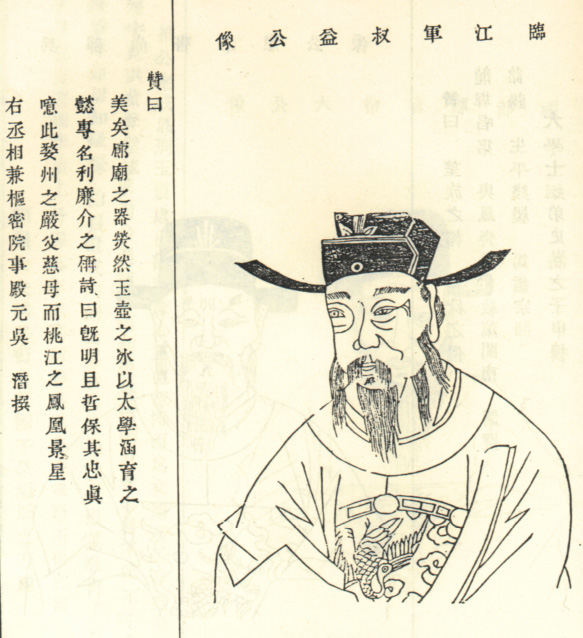 臨江軍叔益公像
贊曰
美矣廊廟之器熒然玉壺之冰以太學涵育之
懿專名利廉介之稱詩曰旣明且哲保其忠眞
噫此婺州之嚴父慈母而桃江之鳳凰景星
右丞相兼樞密院事殿元吳潛撰